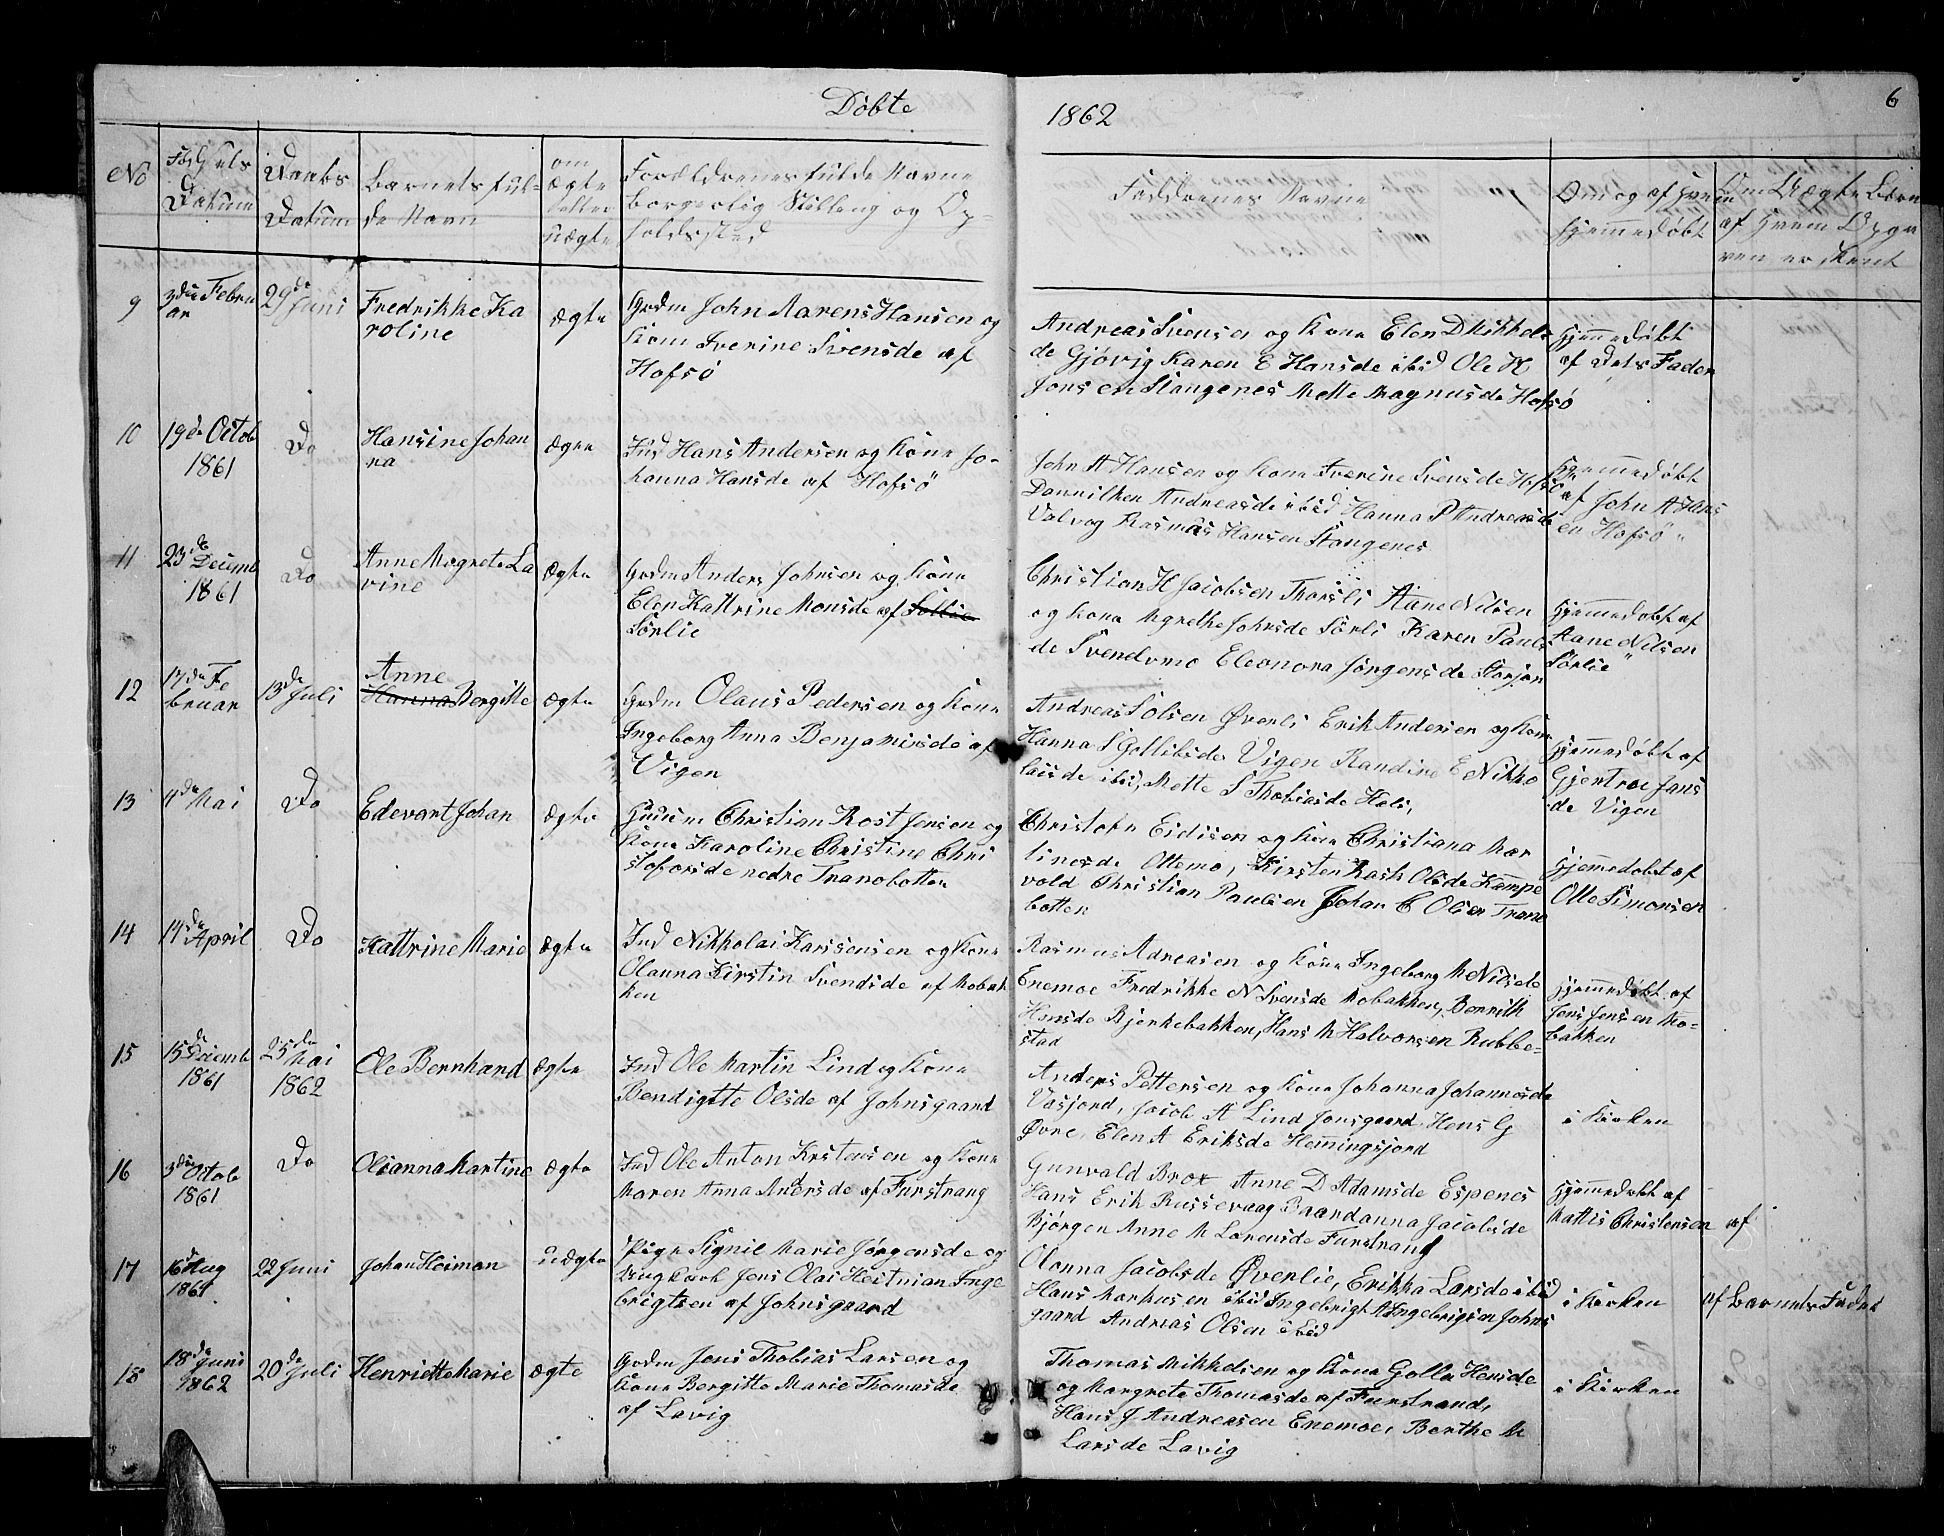 Döbte
1862
6
No
Fødsels Datum
Daabs Datum
Barnets fulde Navn
om ægte eller uægte
Forældrenes fulde Navne
Borgerlig Stilling og Opholdssted
Faddrenes Navne
Om og af hvem hjemmedøbt
Om Uægte Børn af hvem Opgaven er skeet
9
3die Februar
29de Juni
Fredrikke Karoline
ægte
Grdm John Marens Hansen og
Kone Iverine Svensde af
Hofsö
Andreas Svensen og Kone Elen D Mikkels
de Gjövig Karen E Hansde ibid Ole H
Jonsen Stangenes Mette Magnusde Hofsö
Hjemmedøbt
af Dets Fader
10
19de Octob
1861
Do
Hansine Johan
na
ægte
Ind Hans Andersen og Kone Jo-
hanna Hansde af Hofsö
John A Hansen og Kone Iverine Svensde Hofsö
Dannikken Andreasde ibid Hanna P Andreasde
Valvog Rasmus Hansen Stangenes
Hjemmedøbt
af John A Hans
en Hofsö
11
23de
Decemb
1861
Do
Anne Magrete La
vine
ægte
Grdm Anders Johnsen og Kone
Elen Kattrine Monsde af Sollie
Sörlie
Christian H Jacobsen Thorsli Aane Nilsen
og Kone Mgrethe Johnsde Sörli Karen Pauls
de Svendvmo Eleonora Jörgensde Storjor
Hjemmedøbt af
Aane Nilsen
Sörlie
12
17de Fe
bruar
13de Juli
Anne
Hanna Bergitte
ægte
Grdm Olaus Pedersen og Kone
Ingeborg Anna Benjaminsde af
Vigen
Andreas Solsen Øverli Erik Andersen og Kone
Hanna S Gollibsde Vigen Randine E Nikko
laisde ibid, Mette S Thobiasde Hals,
Hjemmedøbt af
Gjertroe Jans
de Vigen
13
4de Mai
Do
Edevart Johan
ægte
Christian Rost Jensen og
Kone Karoline Christine Chri
stofersde nedre Tranobotten
Christofer Eidisen og Kone Christiana Mar
tinesde Ottemo, Kirsten Rash Olsde Kampe
vold Christian Paulsen Johan C Olsen Trano
botten
Hjemmedøbt af
Otte Simonsen
14
14de April
Do
Kattrine Marie
ægte
Ind Nikkolai Karstensen og Kone
Olanna Kirstin Svendsde af Mobak
ken
Rasmus Adreasen og Kone Ingeborg M Nilsde
Enemoe Fredrikke N Svensde Mobakken, Bennith
Hansde Bjerkebakken, Hans M Halvorsen Rubbe-
stad
Hjemmedøbt af
Jens Jensen Mo-
bakken
15
15de
Decemb
1861
25de
Mai
1862
Ole Bernhard
ægte
Ind Ole Martin Lind og Kone
Bendigtte Olsde af Johnsgaard
Anders Pettersen og Kone Johanna Johannesde
Vasjord, Jacob A Lind Jonsgaard Hans G
Øvre, Elen A Eriksde Hemingsjord
i Kirken
16
3die
Octob
1861
Do
Olianna Martine
ægte
Ind Ole Anton Krstensen og Kone
Maren Anna Andersde af Furstrang
Gunvald Brox Anne D Adamsde Espenes
Hans Erik Russevaag Baardanna Jacobsde
Björgen Anne M Larensde Furstrand
Hjemmedøbt af
Mattis Christensen
af
17
16de Aug
1861
22 Juni
Johan Heiman
uægte
Pige Signil Marie Jörgensde og
Ungkarl Jens Olai Heitman Inge
brigtsen af Johnsgaard
Olanna Jacobsde Øverlie, Erikka Larsde ibid
Hans Markusen ibid Ingebrigt A Ingebrigtsen Johns
gaard Andreas Olsen ibid
i Kirken
af Barnets Fader
18
18de Juni
1862
20de Juli
Henriette Marie
ægte
Grdm Jens Thobias Larsen og
Kone Bergitte Marie Thomasde
af Lavig
Thomas Mikkelsen og Kone Golla Hansde
og Margrete Thomasde af Furstrand,
Hans J Andreasen Enemoe, Berthe M
Larsde Lavig
i Kirken